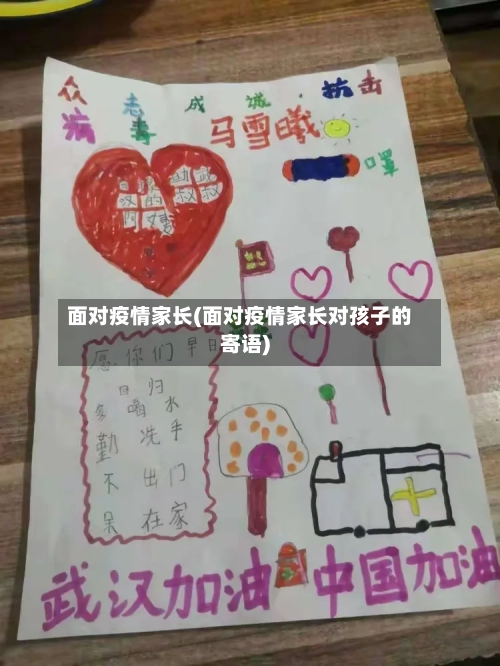 众志成城·抗击
病毒 马雪曦
口罩
叔叔
阿姨
面对疫情家长(面对疫情家长对孩子的
寄语)
愿你们早日
日归
多喝水
勤洗手
不出门
呆在家
武汉加油 中国加油